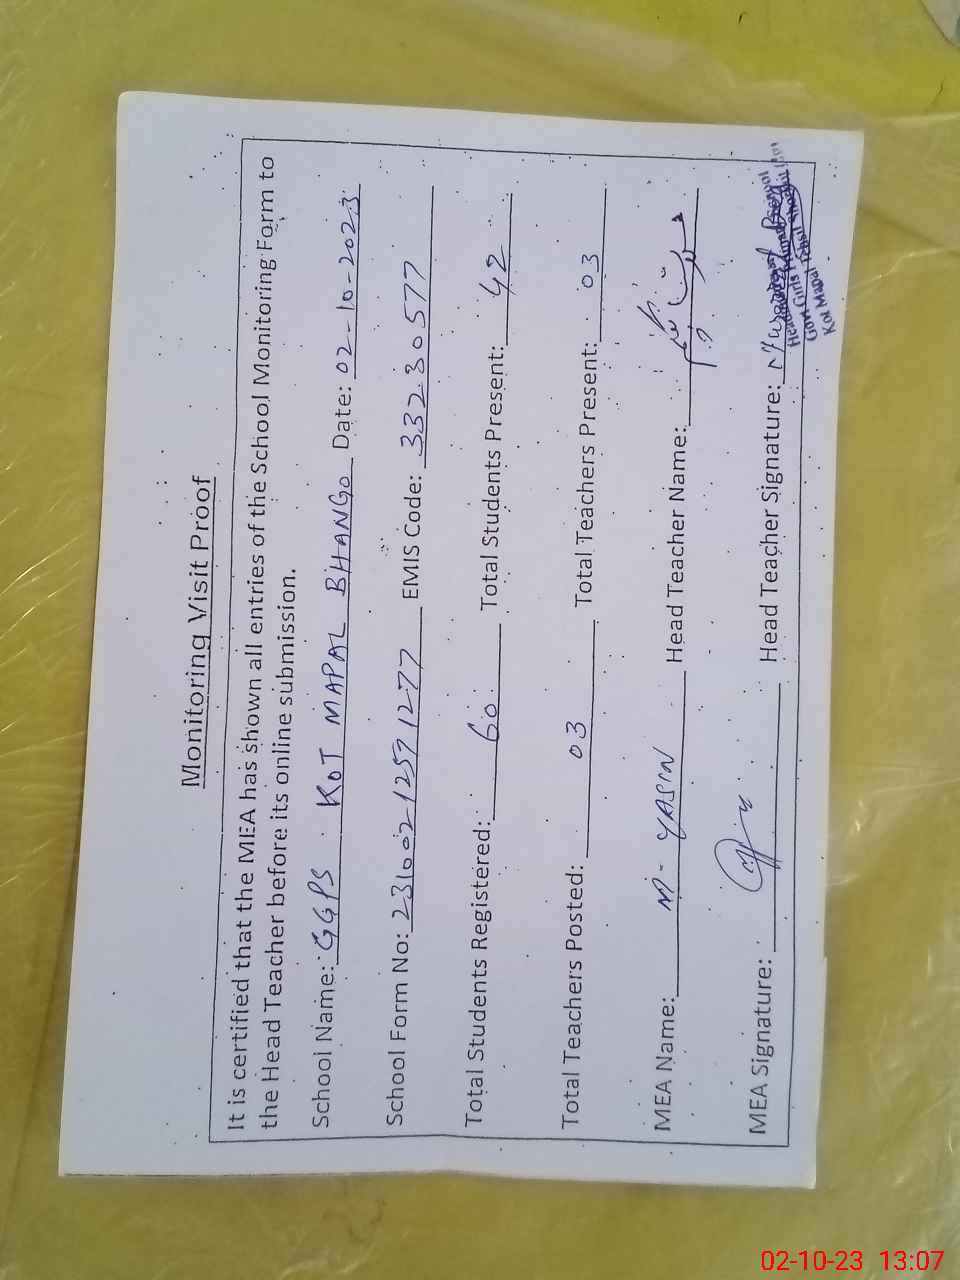 Monitoring Visit Proof
It is certified that the MEA has shown all entries of the School Monitoring Form to
the Head Teacher before its online submission.
School Name: GGPS KOT MAPAL BHANGO Date: 02-10-2023
School Form No: 23100212591277 EMIS Code: 33230577
Total Students Registered: 60 Total Students Present: 42
Total Teachers Posted: 03 Total Teachers Present: 03
MEA Name: M- YASIN Head Teacher Name:
MEA Signature: Head Teacher Signature:
Govt Girls Primary School
Kot Mapal
02-10-23 13:07